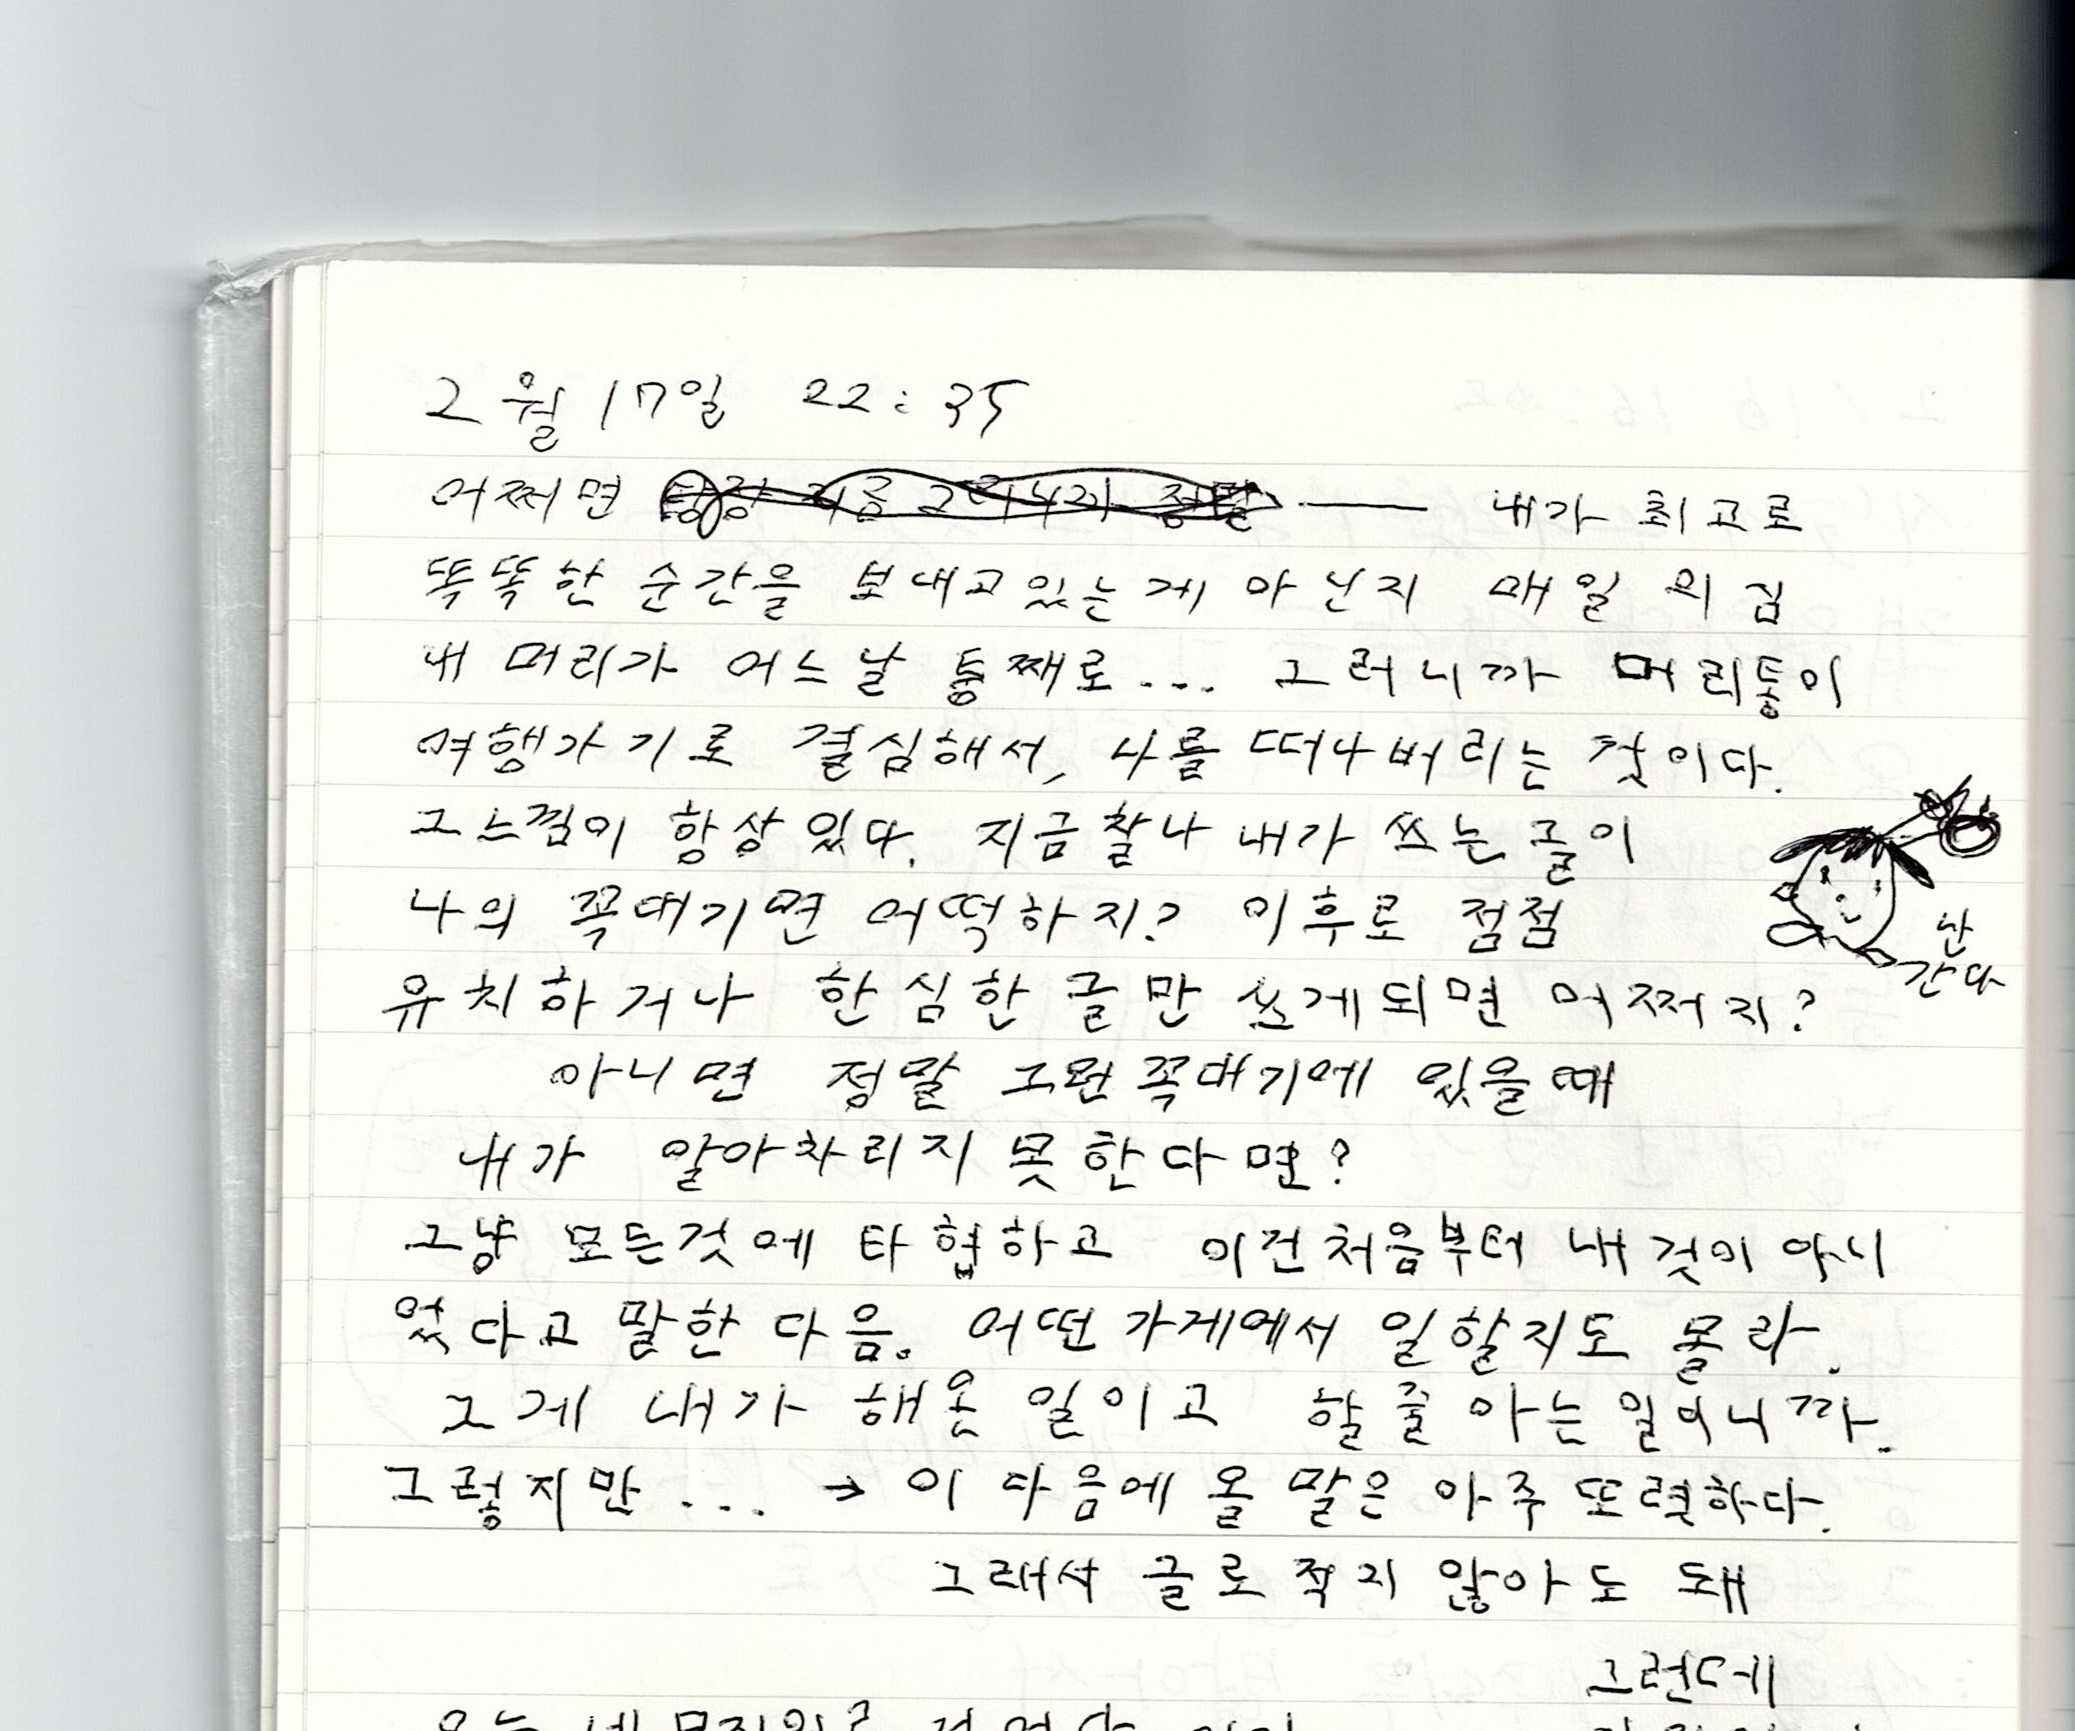 2월 17일 22:35
어쩌면 당장 지금 그러니까 정말 —— 내가 최고로
똑똑한 순간을 보내고있는게 아닌지 매일 의심
내 머리가 어느날 통째로... 그러니까 머리통이
여행가기로 결심해서, 나를 떠나버리는 것이다.
그느낌이 항상있다. 지금찰나 내가 쓰는글이
나의 꼭대기면 어떡하지? 이후로 점점
난
간다
유치하거나 한심한 글만 쓰게되면 어쩌지?
아니면 정말 그런꼭대기에 있을때
내가 알아차리지 못한다면?
그냥 모든것에 타협하고 이건처음부터 내것이 아니
었다고 말한 다음. 어떤 가게에서 일할지도 몰라.
그게 내가 해온 일이고 할줄 아는 일이니까.
그렇지만... → 이 다음에 올 말은 아주 또렷하다.
그래서 글로 적지 않아도 돼
그런데